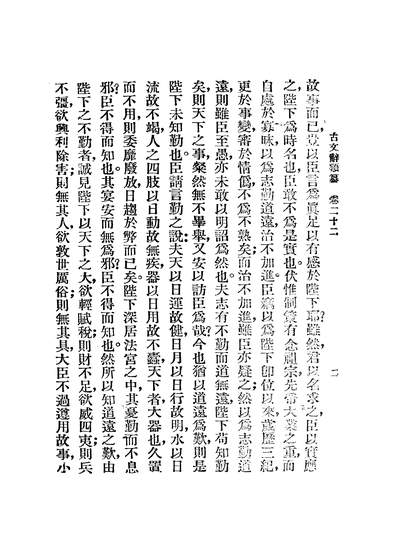 古文辭類纂 卷二十二
二
故事而已,豈以臣言爲眞足以有感於陛下耶?雖然,君以名求之,臣以實應
之,陛下爲是名也,臣敢不爲是實也。伏惟制策有念祖宗先帝大業之重,而
自處於寡昧,以爲志勤道遠,治不加進。臣竊以爲陛下卽位以來,歲歷三紀,
更於事變,審於情僞,不爲不熟矣,而治不加進,雖臣亦疑之。然以爲志勤道
遠,則雖臣至愚,亦未敢以明詔爲然也。夫志有不勤而道無遠,陛下苟知勤
矣,則天下之事,粲然無不畢舉,又安以訪臣爲哉?今也猶以道遠爲歎,則是
陛下未知勤也。臣請言勤之說:夫天以日運,故健,日月以日行,故明,水以日
流,故不竭,人之四肢以日動,故無疾,器以日用,故不蠹。天下者,大器也,久置
而不用,則委靡廢放,日趨於弊而已矣。陛下深居法宮之中,其憂勤而不息
邪?臣不得而知也。其宴安而無爲邪?臣不得而知也。然所以知道遠之歎,由
陛下之不勤者,誠見陛下以天下之大,欲輕賦稅,則財不足,欲威四夷,則兵
不彊,欲興利除害,則無其人,欲敦世厲俗,則無其具,大臣不過遵用故事,小